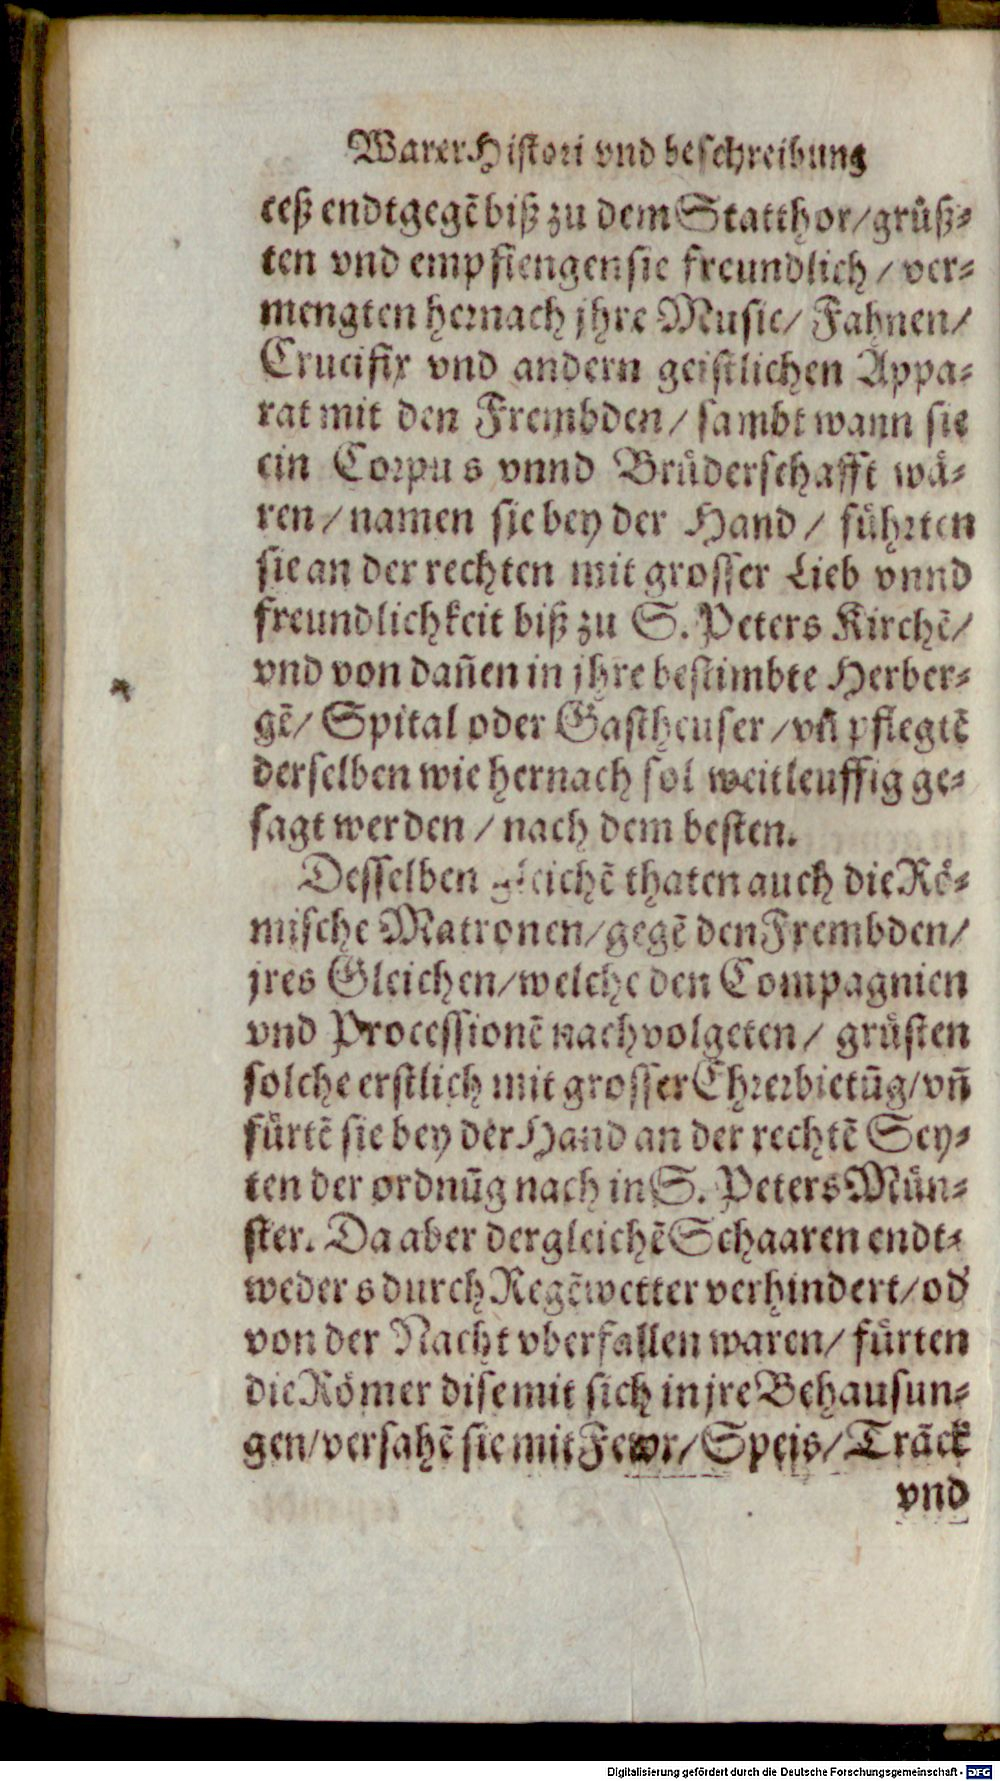 Warer Histori vnd beschreibung
ceß endtgegẽ biß zu dem Statthor/ grüß-
ten vnd empfiengen sie freundlich / ver-
mengten hernach jhre Music/ Fahnen/
Crucifix vnd andern geistlichen Appa-
rat mit den Frembden/ sambt wann sie
ein Corpus vnnd Brüderschafft wä-
ren / namen sie bey der Hand / führten
sie an der rechten mit grosser Lieb vnnd
freundlichkeit biß zu S. Peters Kirchẽ/
vnd von dañen in jhre bestimbte Herber-
gẽ/ Spital oder Gastheuser / vñ pflegtẽ
derselben wie hernach sol weitleuffig ge-
sagt werden / nach dem besten.
Desselben gleichẽ thaten auch die Rö-
mische Matronen/ gegẽ den Frembden/
jres Gleichen/ welche den Compagnien
vnd Processionẽ nachvolgeten / grüsten
solche erstlich mit grosser Ehrerbietũg/ vñ
fürtẽ sie bey der Hand an der rechtẽ Sey-
ten der ordnũg nach in S. Peters Mün-
ster. Da aber dergleichẽ Schaaren endt-
weders durch Regẽwetter verhindert/ od'
von der Nacht vberfallen waren/ fürten
die Römer dise mit sich in jre Behausun-
gen/ versahẽ sie mit Fewr/ Speis/ Trãck
vnd
Digitalisierung gefördert durch die Deutsche Forschungsgemeinschaft - DFG